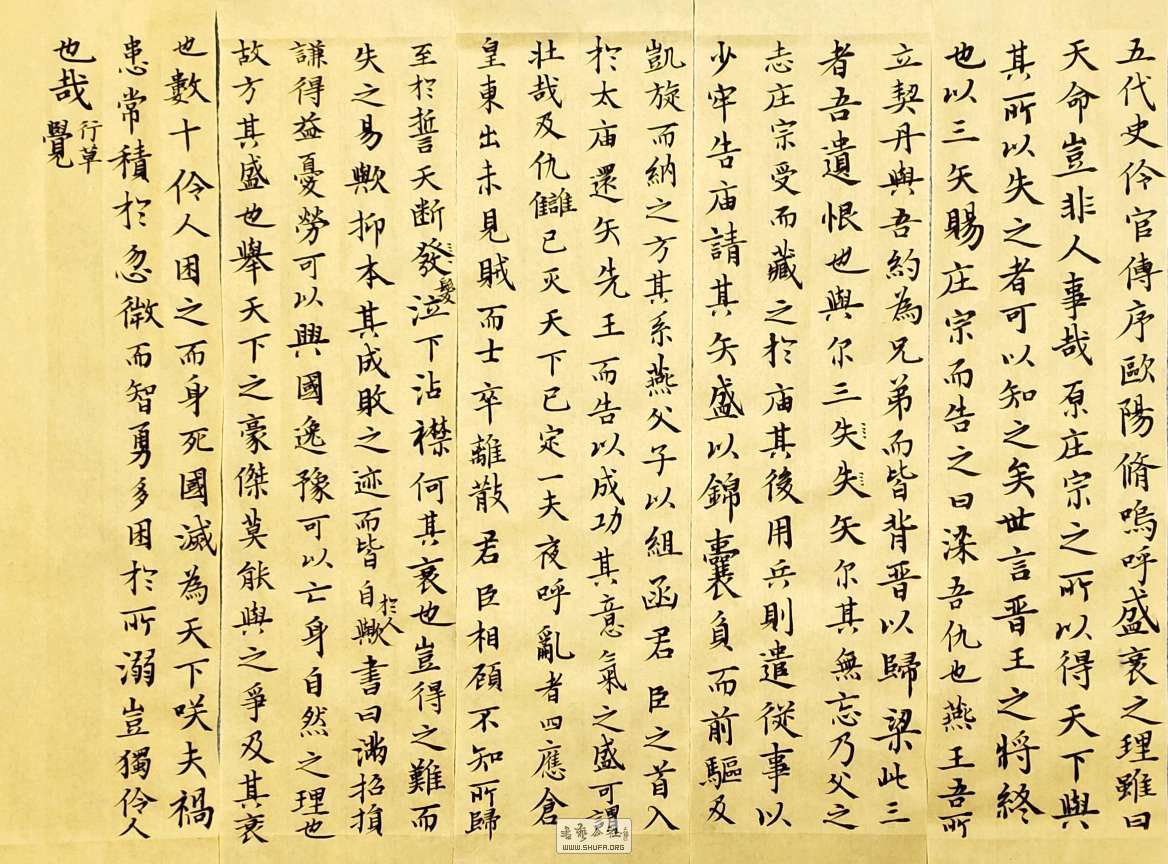 五代史伶官傳序歐陽脩嗚呼盛衰之理雖曰
天命豈非人事哉原庄宗之所以得天下與
其所以失之者可以知之矣世言晋王之将終
也以三矢賜庄宗而告之曰梁吾仇也燕王吾所
立契丹與吾約為兄弟而皆背晋以歸梁此三
者吾遺恨也與尔三失失矢尔其無忘乃父之
志庄宗受而藏之於庙其後用兵則遣從事以
少牢告庙請其矢盛以錦囊負而前驅及
凱旋而納之方其系燕父子以組函君臣之首入
於太庙還矢先王而告以成功其意氣之盛可謂
壮哉及仇讎已灭天下已定一夫夜呼亂者四應倉
皇東出未見賊而士卒離散君臣相顧不知所歸
至於誓天断發髮泣下沾襟何其衰也豈得之難而
失之易歟抑本其成敗之迹而皆自於人歟書曰满招損
謙得益憂勞可以興國逸豫可以亡身自然之理也
故方其盛也舉天下之豪傑莫能與之爭及其衰
也數十伶人困之而身死國滅為天下咲夫禍
患常積於忽微而智勇多困於所溺豈獨伶人
也哉
行草
覺
WWW.SHUFA.ORG